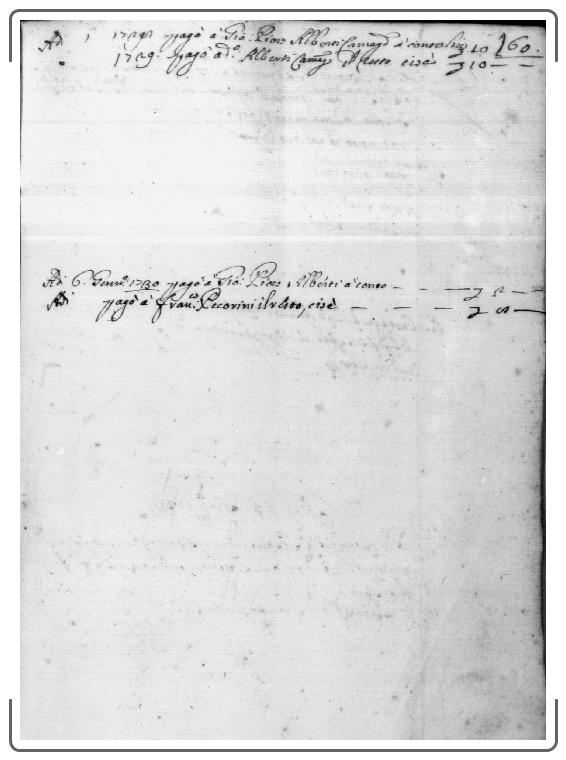 Adi 1 1729 pagò à Gio: Piero Alberti Camag.o à conto 10 160.
1729. pagò à d.o Alberti Camag. il resto cioè 10 — —
Adi 6. Genn.o 1730 pagò à Gio: Piero Alberti à conto — — — 5 — —
Adi pagò à Fran.co Pecorini il resto, cioè — — — — 5 —